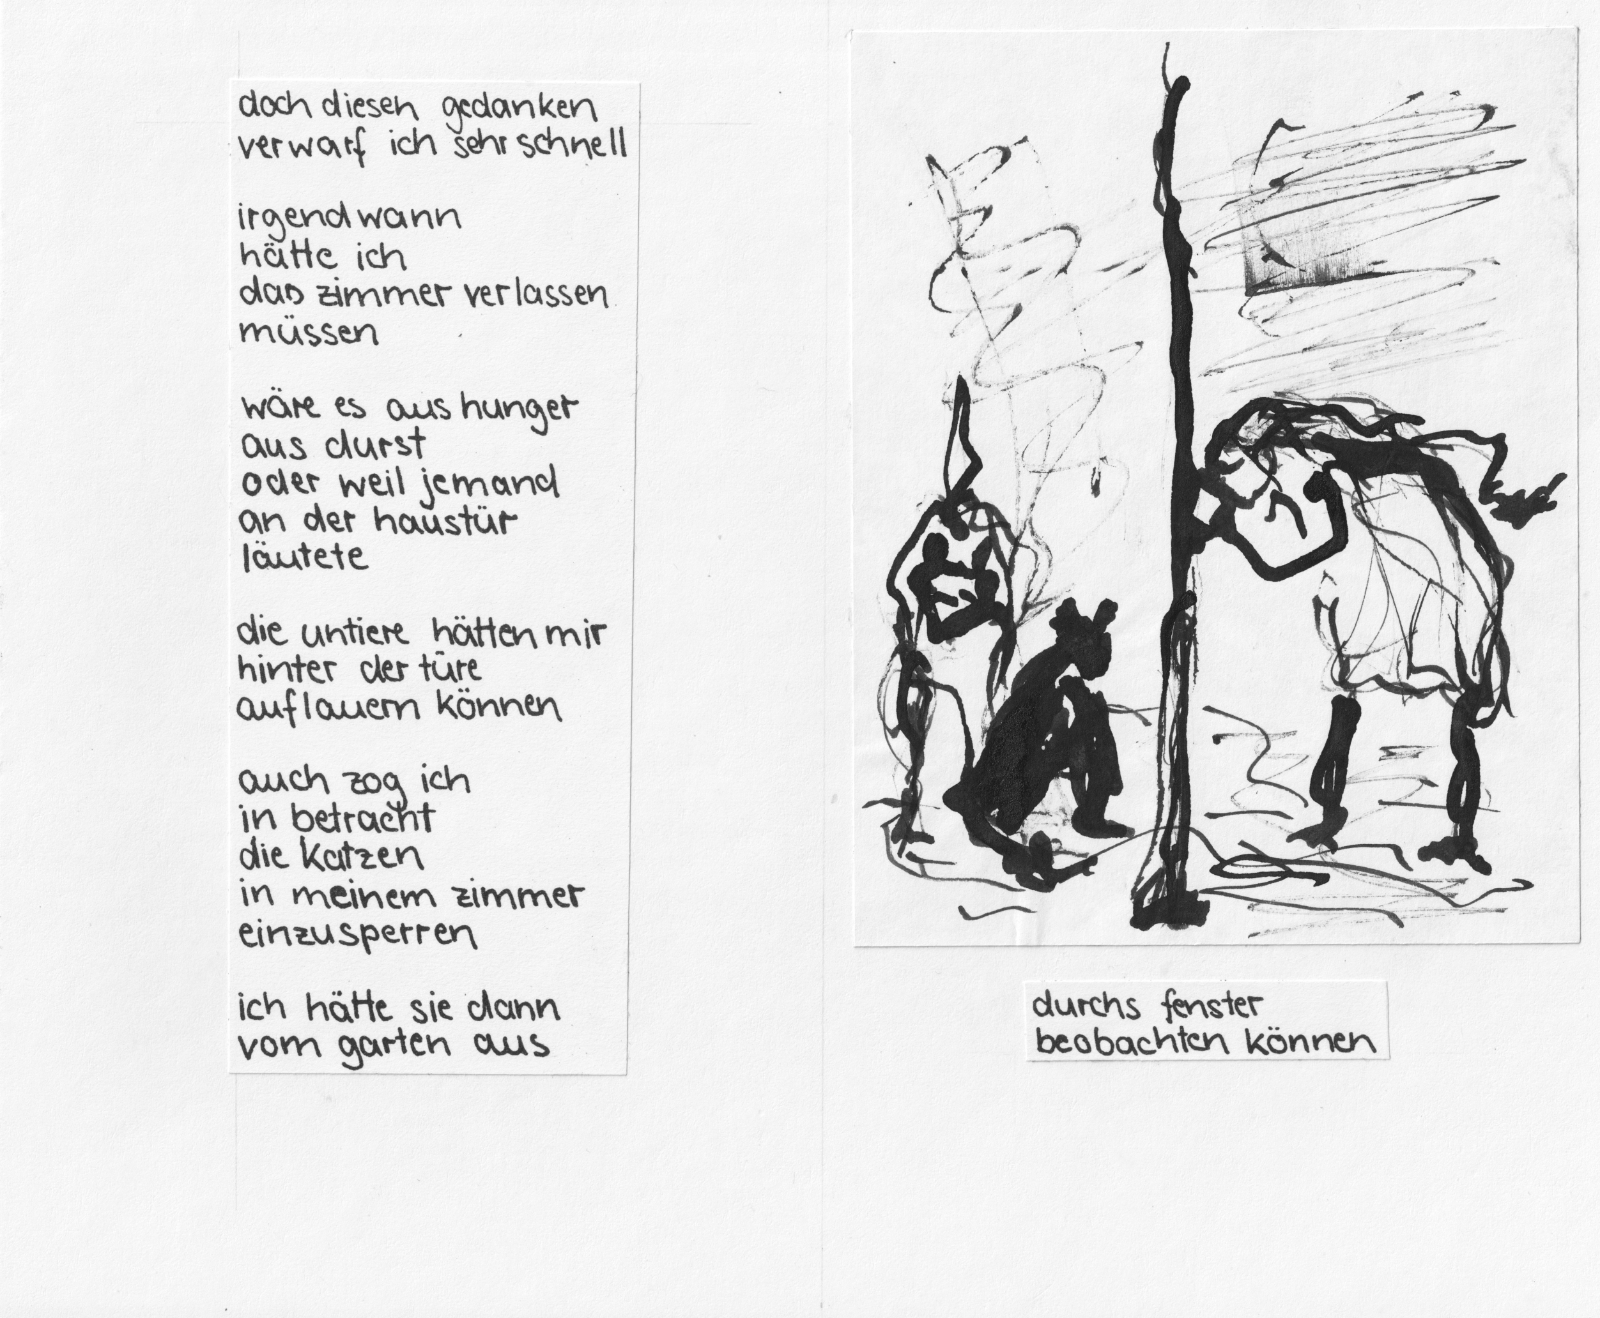 doch diesen gedanken
verwarf ich sehr schnell
irgendwann
hätte ich
das zimmer verlassen
müssen
wäre es aus hunger
aus durst
oder weil jemand
an der haustür
läutete
die untiere hätten mir
hinter der türe
auflauern können
auch zog ich
in betracht
die katzen
in meinem zimmer
einzusperren
ich hätte sie dann
vom garten aus
durchs fenster
beobachten können